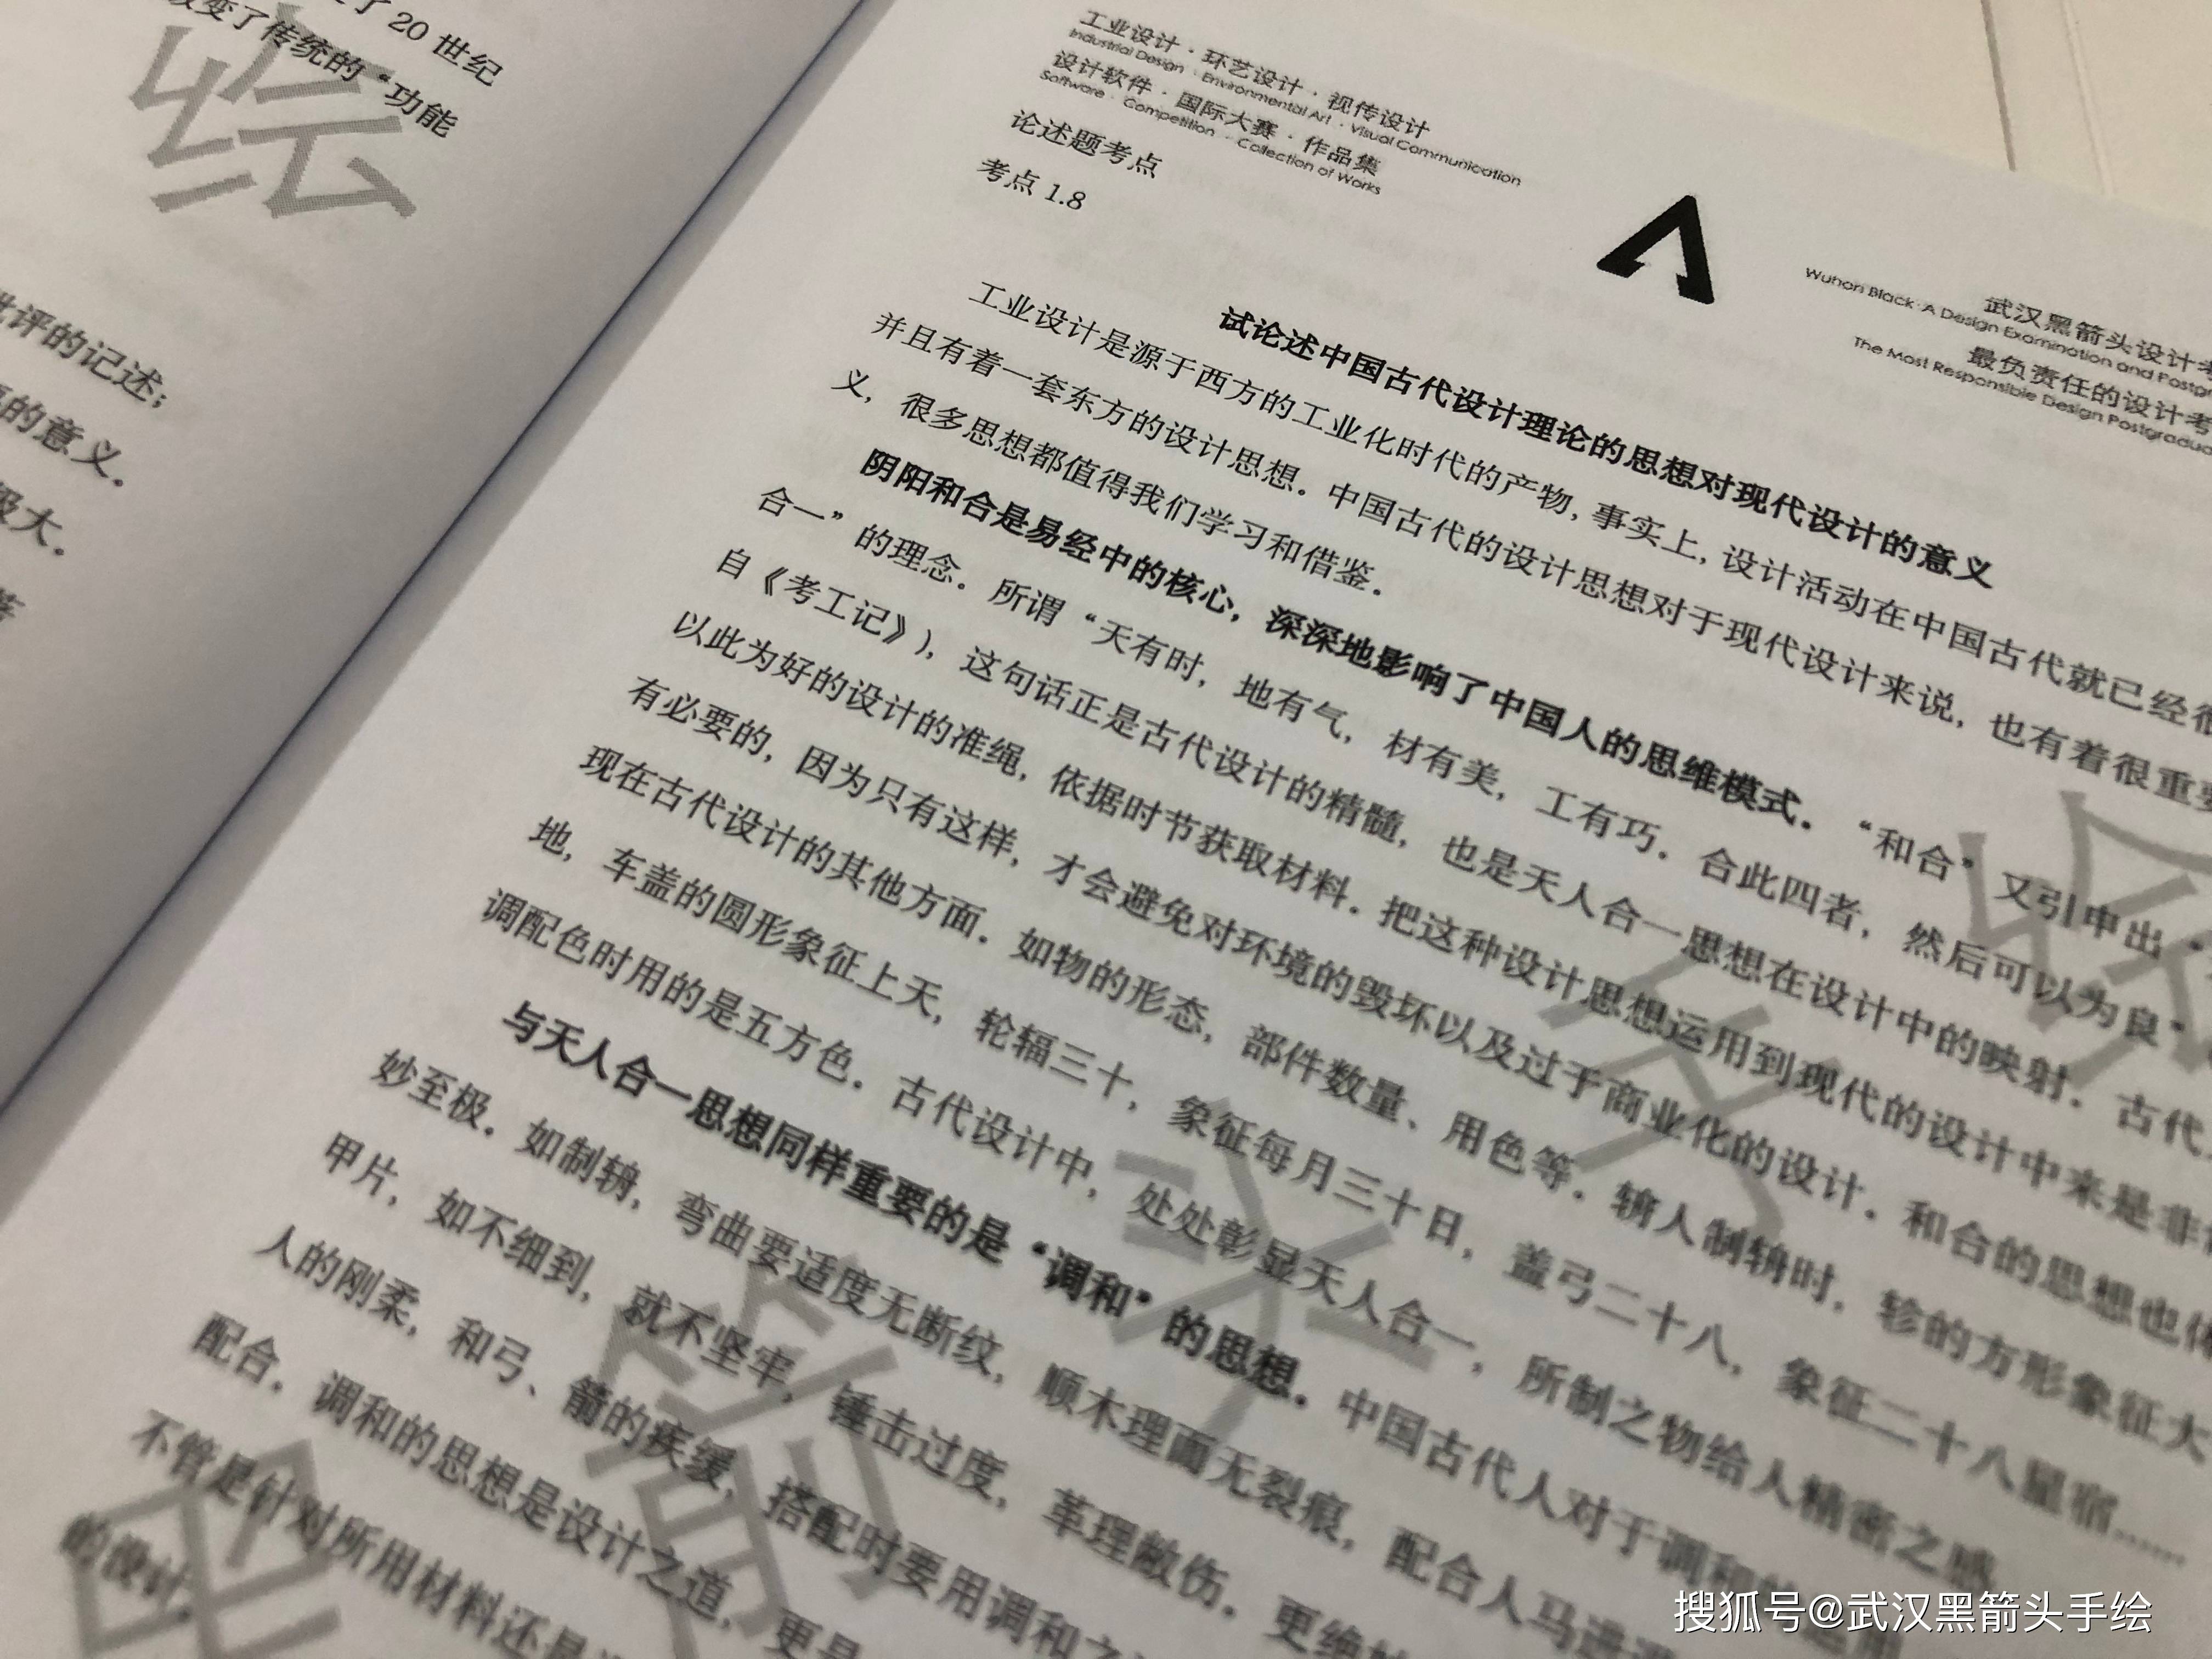 了 20 世纪
改变了传统的“功能
批评的记述；
的意义。
极大。
等
绘
工业设计 · 环艺设计 · 视传设计
Industrial Design · Environmental Art · Visual Communication
设计软件 · 国际大赛 · 作品集
Software · Competition · Collection of Works
武汉黑箭头设计考
Wuhan Black·A Design Examination and Postgr
最负责任的设计考
The Most Responsible Design Postgradua
论述题考点
考点 1.8
试论述中国古代设计理论的思想对现代设计的意义
工业设计是源于西方的工业化时代的产物, 事实上, 设计活动在中国古代就已经很
并且有着一套东方的设计思想。中国古代的设计思想对于现代设计来说，也有着很重要
义，很多思想都值得我们学习和借鉴。
阴阳和合是易经中的核心，深深地影响了中国人的思维模式。“和合”又引申出“
合一”的理念。所谓“天有时，地有气，材有美，工有巧。合此四者，然后可以为良”
自《考工记》)，这句话正是古代设计的精髓，也是天人合一思想在设计中的映射。古代
以此为好的设计的准绳，依据时节获取材料。把这种设计思想运用到现代的设计中来是非
有必要的，因为只有这样，才会避免对环境的毁坏以及过于商业化的设计。和合的思想也体
现在古代设计的其他方面。如物的形态，部件数量、用色等。辀人制辀时，轸的方形象征大
地，车盖的圆形象征上天，轮辐三十，象征每月三十日，盖弓二十八，象征二十八星宿……
调配色时用的是五方色。古代设计中，处处彰显天人合一，所制之物给人精密之感
与天人合一思想同样重要的是“调和”的思想。中国古代人对于调和
妙至极。如制辀，弯曲要适度无断纹，顺木理而无裂痕，配合人马进退
甲片，如不细到，就不坚牢，锤击过度，革理敝伤。更绝妙
人的刚柔，和弓、箭的疾缓，搭配时要用调和之
配合。调和的思想是设计之道，更是
不管是针对所用材料还是
的设计。
搜狐号@武汉黑箭头手绘